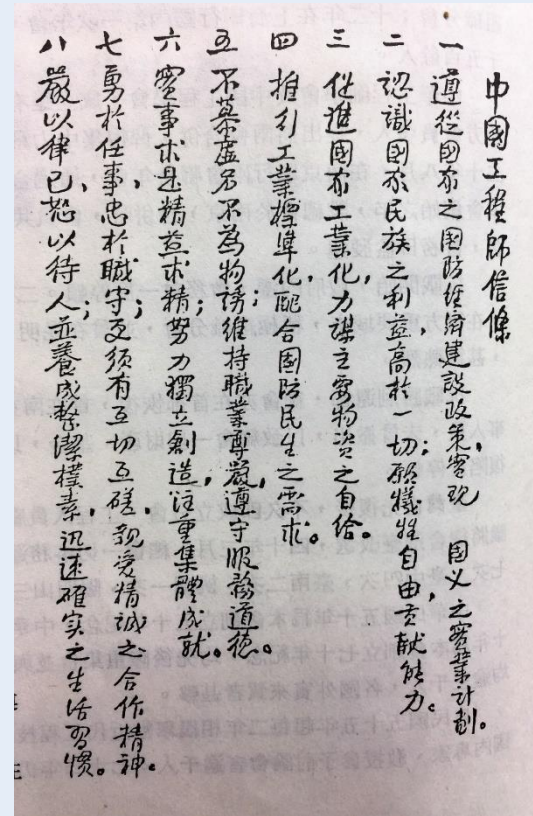 中國工程師信條
一 遵從國家之國防經濟建設政策,實現 國父之實業計劃。
二 認識國家民族之利益高於一切,願犧牲自由貢獻能力。
三 促進國家工業化,力謀主要物資之自給。
四 推行工業標準化,配合國防民生之需求。
五 不慕虛名,不為物誘,維持職業尊嚴,遵守服務道德。
六 實事求是,精益求精,努力獨立創造,注重集體成就。
七 勇於任事,忠於職守,更須有互切互磋,親愛精誠之合作精神。
八 嚴以律己,恕以待人,並養成整潔樸素,迅速確實之生活習慣。